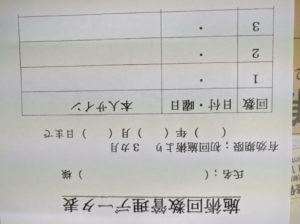 施術回数管理データ表
氏名；（　　　　　　　）様
有効期限；施術初回より　3カ月
（　　）年（　　）月（　　）日まで
回数　日付・曜日　本人サイン
1　・
2　・
3　・